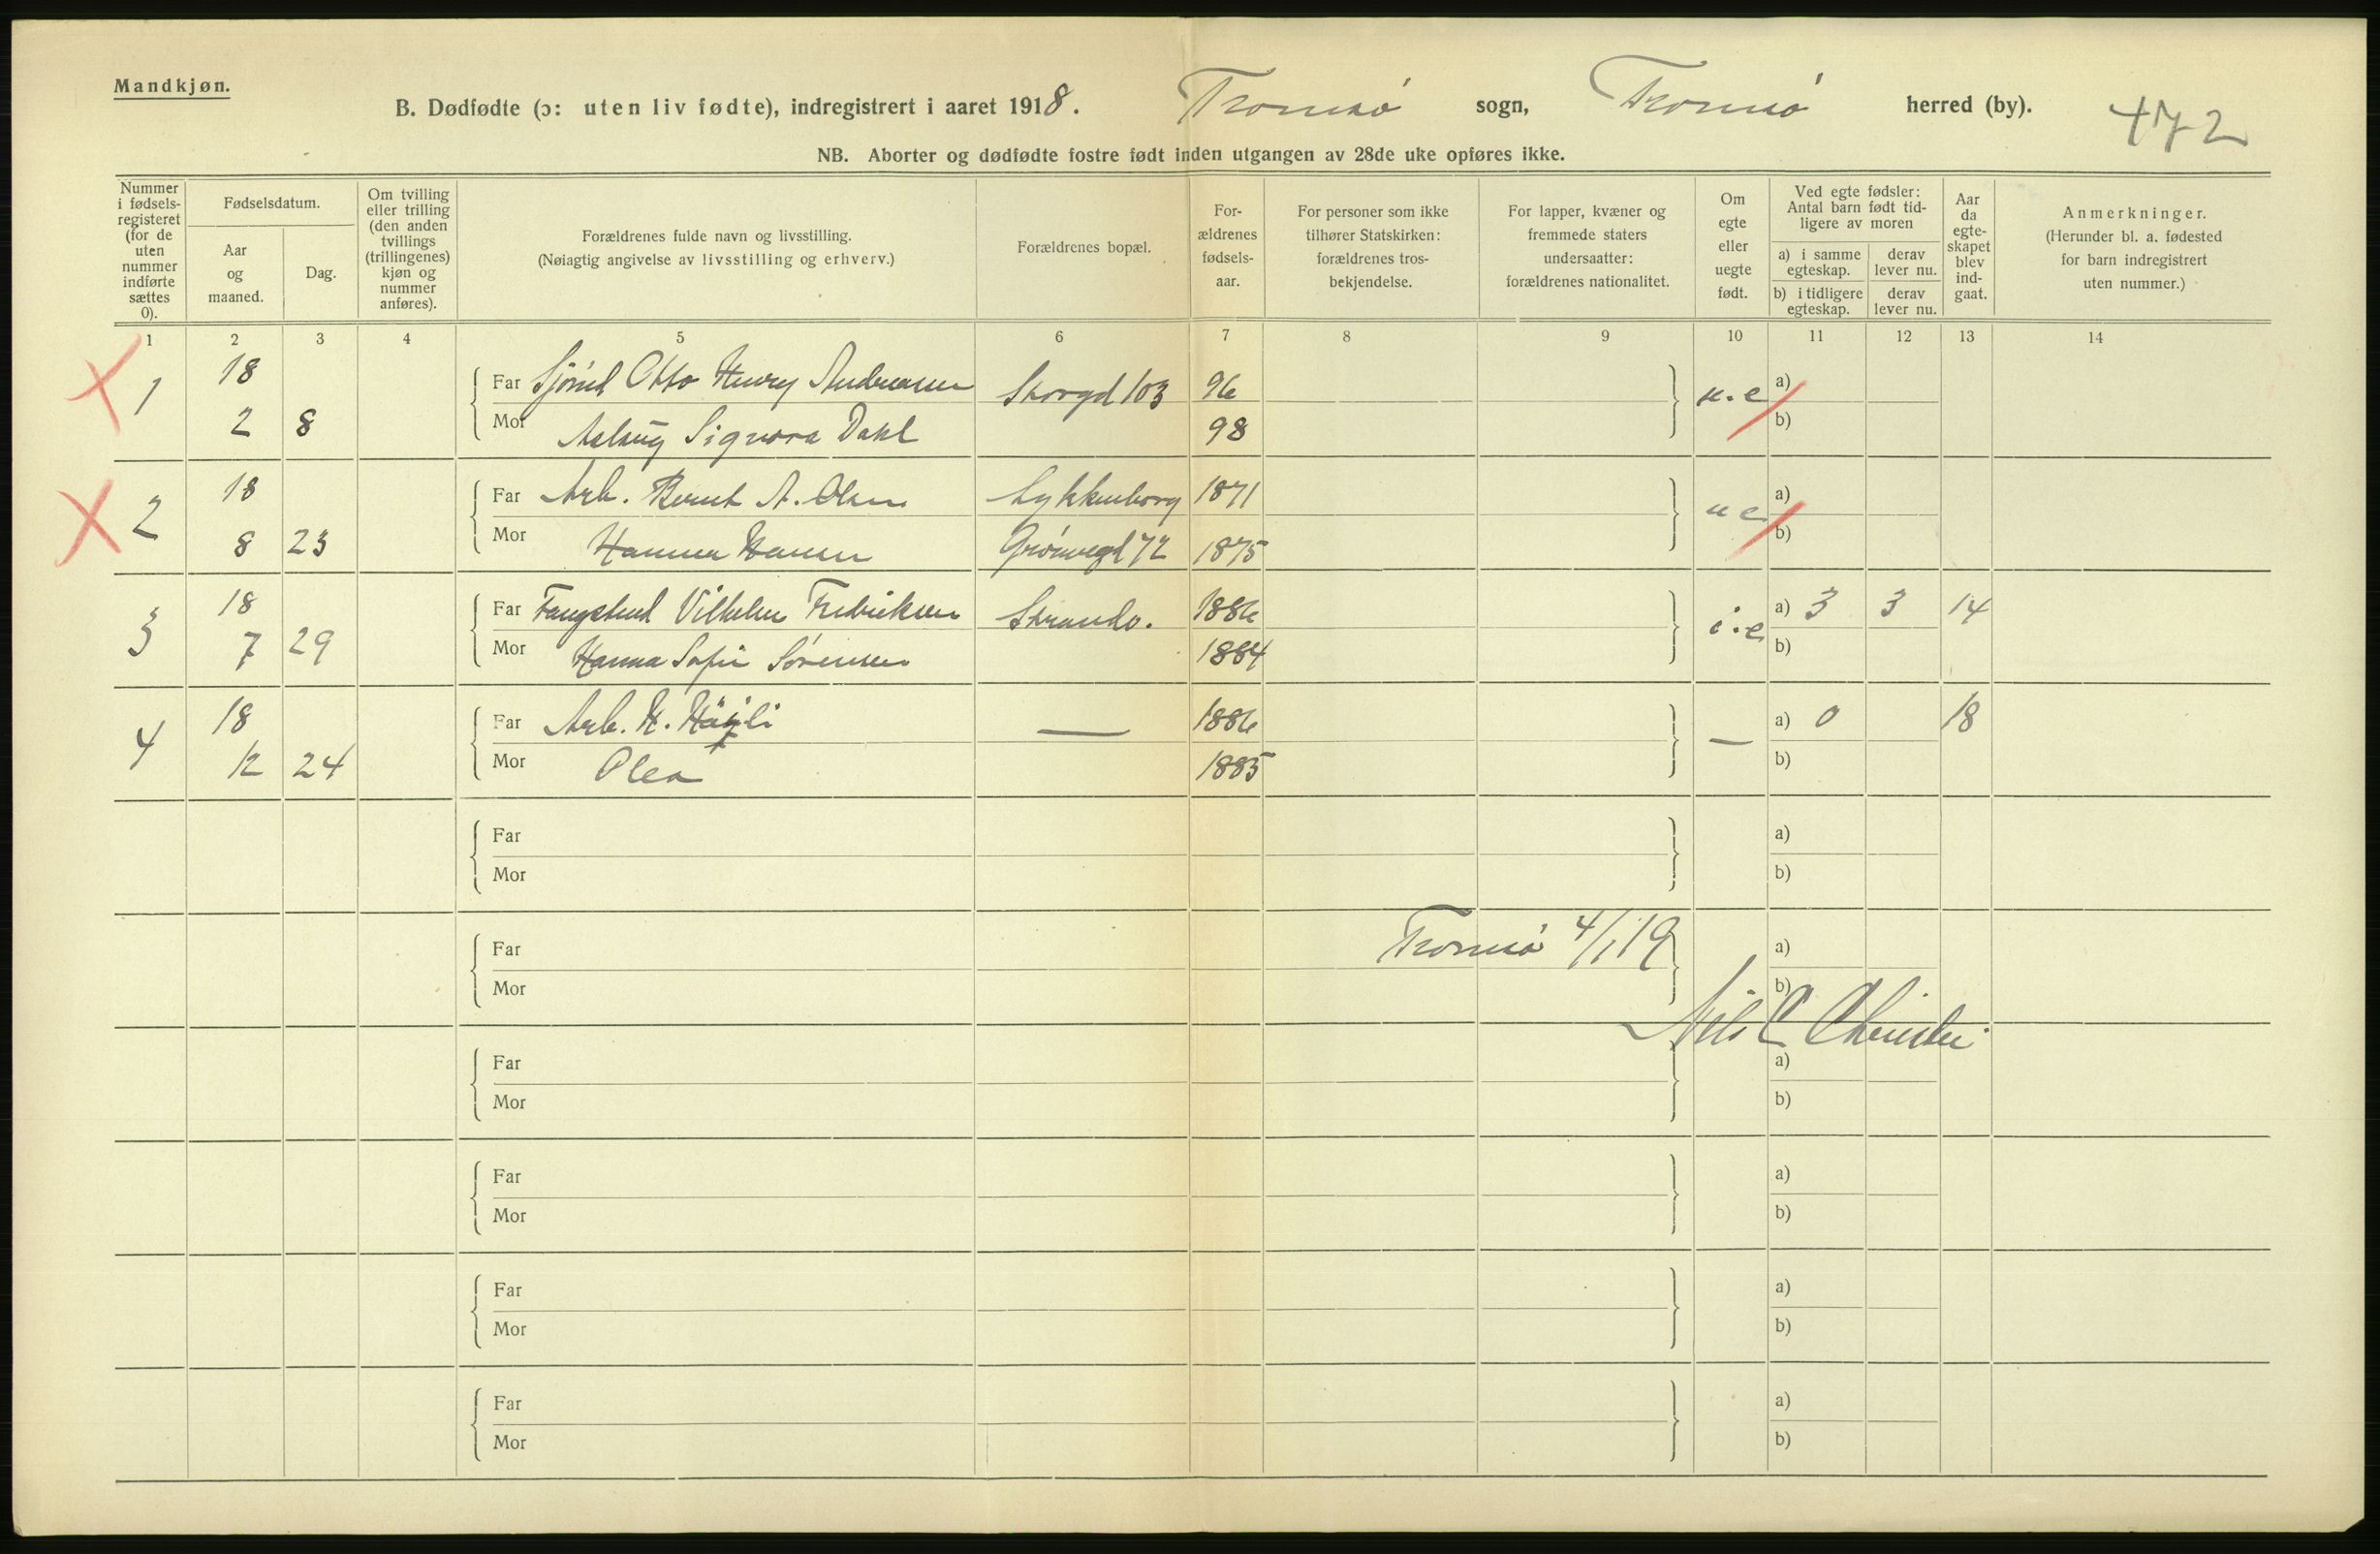 Mandkjøn.
B. Dødfødte (ɔ: uten liv fødte), indregistrert i aaret 1918. Tromsø sogn, Tromsø herred (by). 472
NB. Aborter og dødfødte fostre født inden utgangen av 28de uke opføres ikke.
Nummer
i fødsels-
registeret
(for de
uten
nummer
indførte
sættes
0).
Fødselsdatum.
Aar
og
maaned.
Dag.
Om tvilling
eller trilling
(den anden
tvillings
(trillingenes)
kjøn og
nummer
anføres).
Forældrenes fulde navn og livsstilling.
(Nøiagtig angivelse av livsstilling og erhverv.)
Forældrenes bopæl.
For-
ældrenes
fødsels-
aar.
For personer som ikke
tilhører Statskirken:
forældrenes tros-
bekjendelse.
For lapper, kvæner og
fremmede staters
undersaatter:
forældrenes nationalitet.
Om
egte
eller
uegte
født.
Ved egte fødsler:
Antal barn født tid-
ligere av moren
a) i samme
egteskap.
derav
lever nu.
b) i tidligere
egteskap.
derav
lever nu.
Aar
da
egte-
skapet
blev
ind-
gaat.
Anmerkninger.
(Herunder bl. a. fødested
for barn indregistrert
uten nummer.)
1 2 3 4 5 6 7 8 9 10 11 12 13 14
1 18 Far Sjömd Otto Henry Andreasen Storgd 103 96 u.e a)
2 8 Mor Aslaug Signora Dahl 98 b)
2 18 Far Arb. Bernt A. Olsen Lykkenborg 1871 u e a)
8 23 Mor Hanna Hansen Grønnegd 72 1875 b)
3 18 Far Fangstmd Vilhelm Fredriksen Strandv. 1886 i.e a) 3 3 14
7 29 Mor Hanna Sofie Sörensen 1884 b)
4 18 Far Arb. H. — 1886 — a) 0 18
12 24 Mor Olea 1885 b)
Far a)
Mor b)
Far Tromsø 4/1 19 a)
Mor b)
Nils C
Far a)
Mor b)
Far a)
Mor b)
Far a)
Mor b)
Far a)
Mor b)